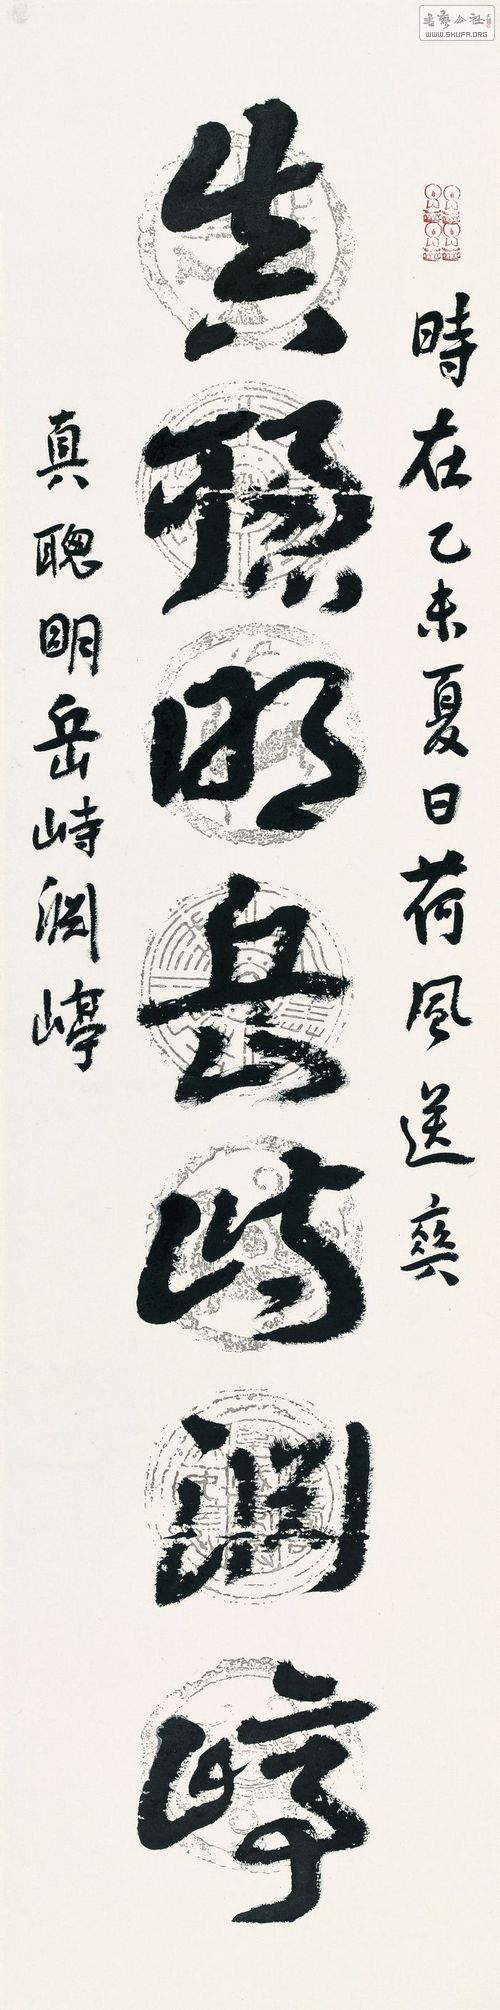 書藝公社
WWW.SHUFA.ORG
時在乙未夏日荷風送爽
真聰明岳峙淵嵉
真聰明岳峙淵嵉